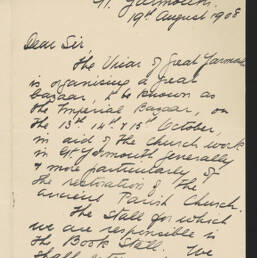 Gt. Yarmouth.
19th August 1908
Dear Sir
The Vicar of Great Yarmouth
is organising a great
bazaar, to be known as
the Imperial Bazaar, on
the 13th 14th & 15th October,
in aid of the Church work
in Gt Yarmouth generally
& more particularly of
the restoration of the
ancient Parish Church.
The Stall for which
we are responsible is
the Book Stall. We